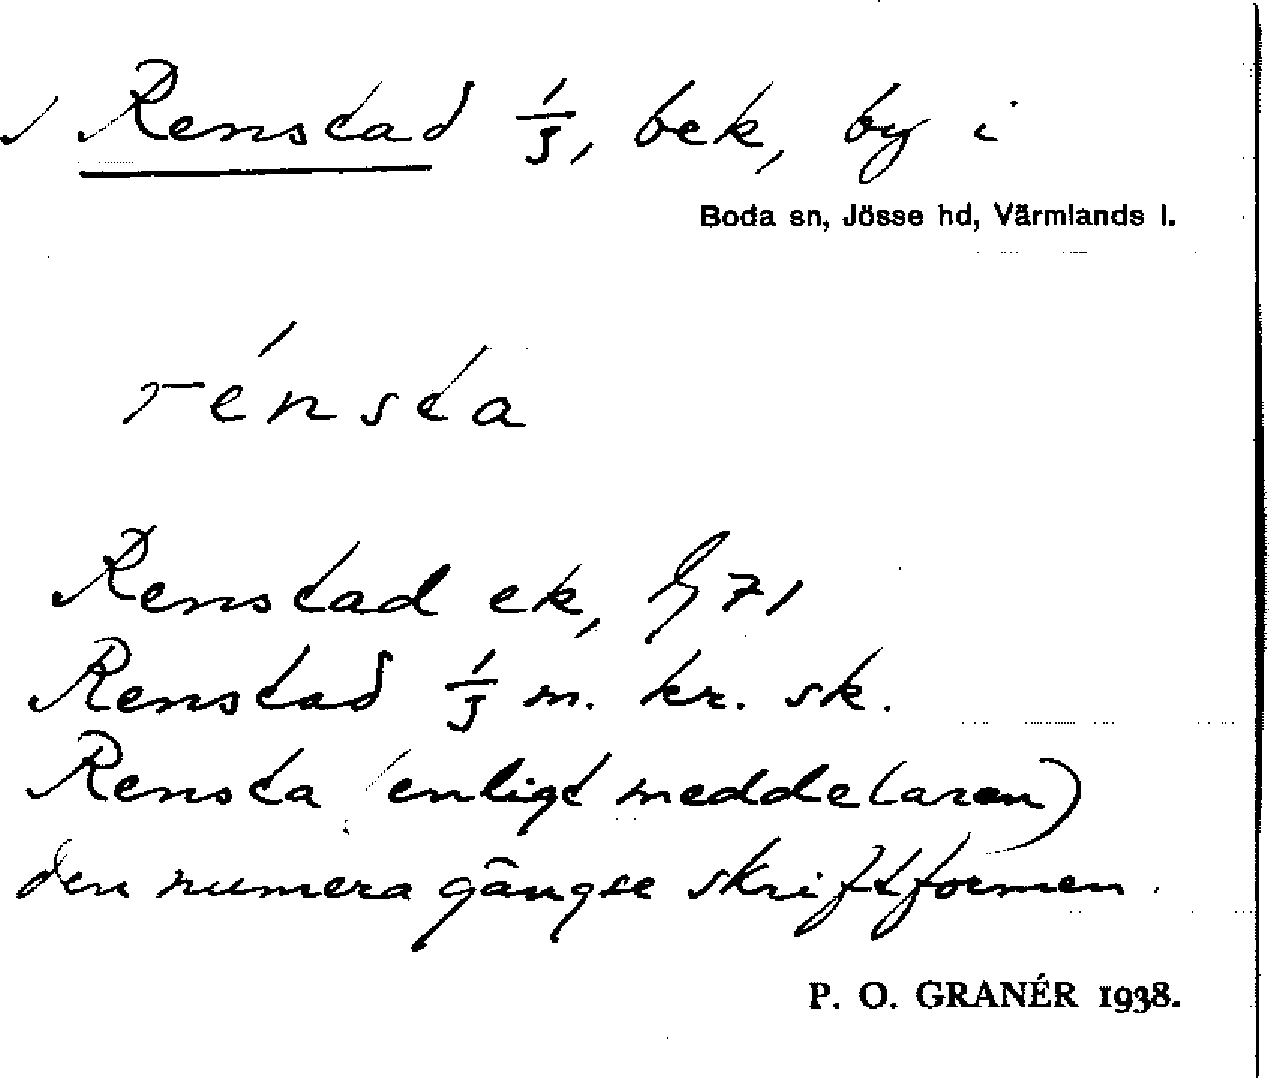 Renstad 1/3, bek, by i
Boda sn, Jösse hd, Värmlands l.
rénsta
Renstad ek, G 71
Renstad 1/3 m. kr. sk.
Rensta (enligt meddelaren)
den numera gängse skriftformen.
P. O. GRANÉR 1938.